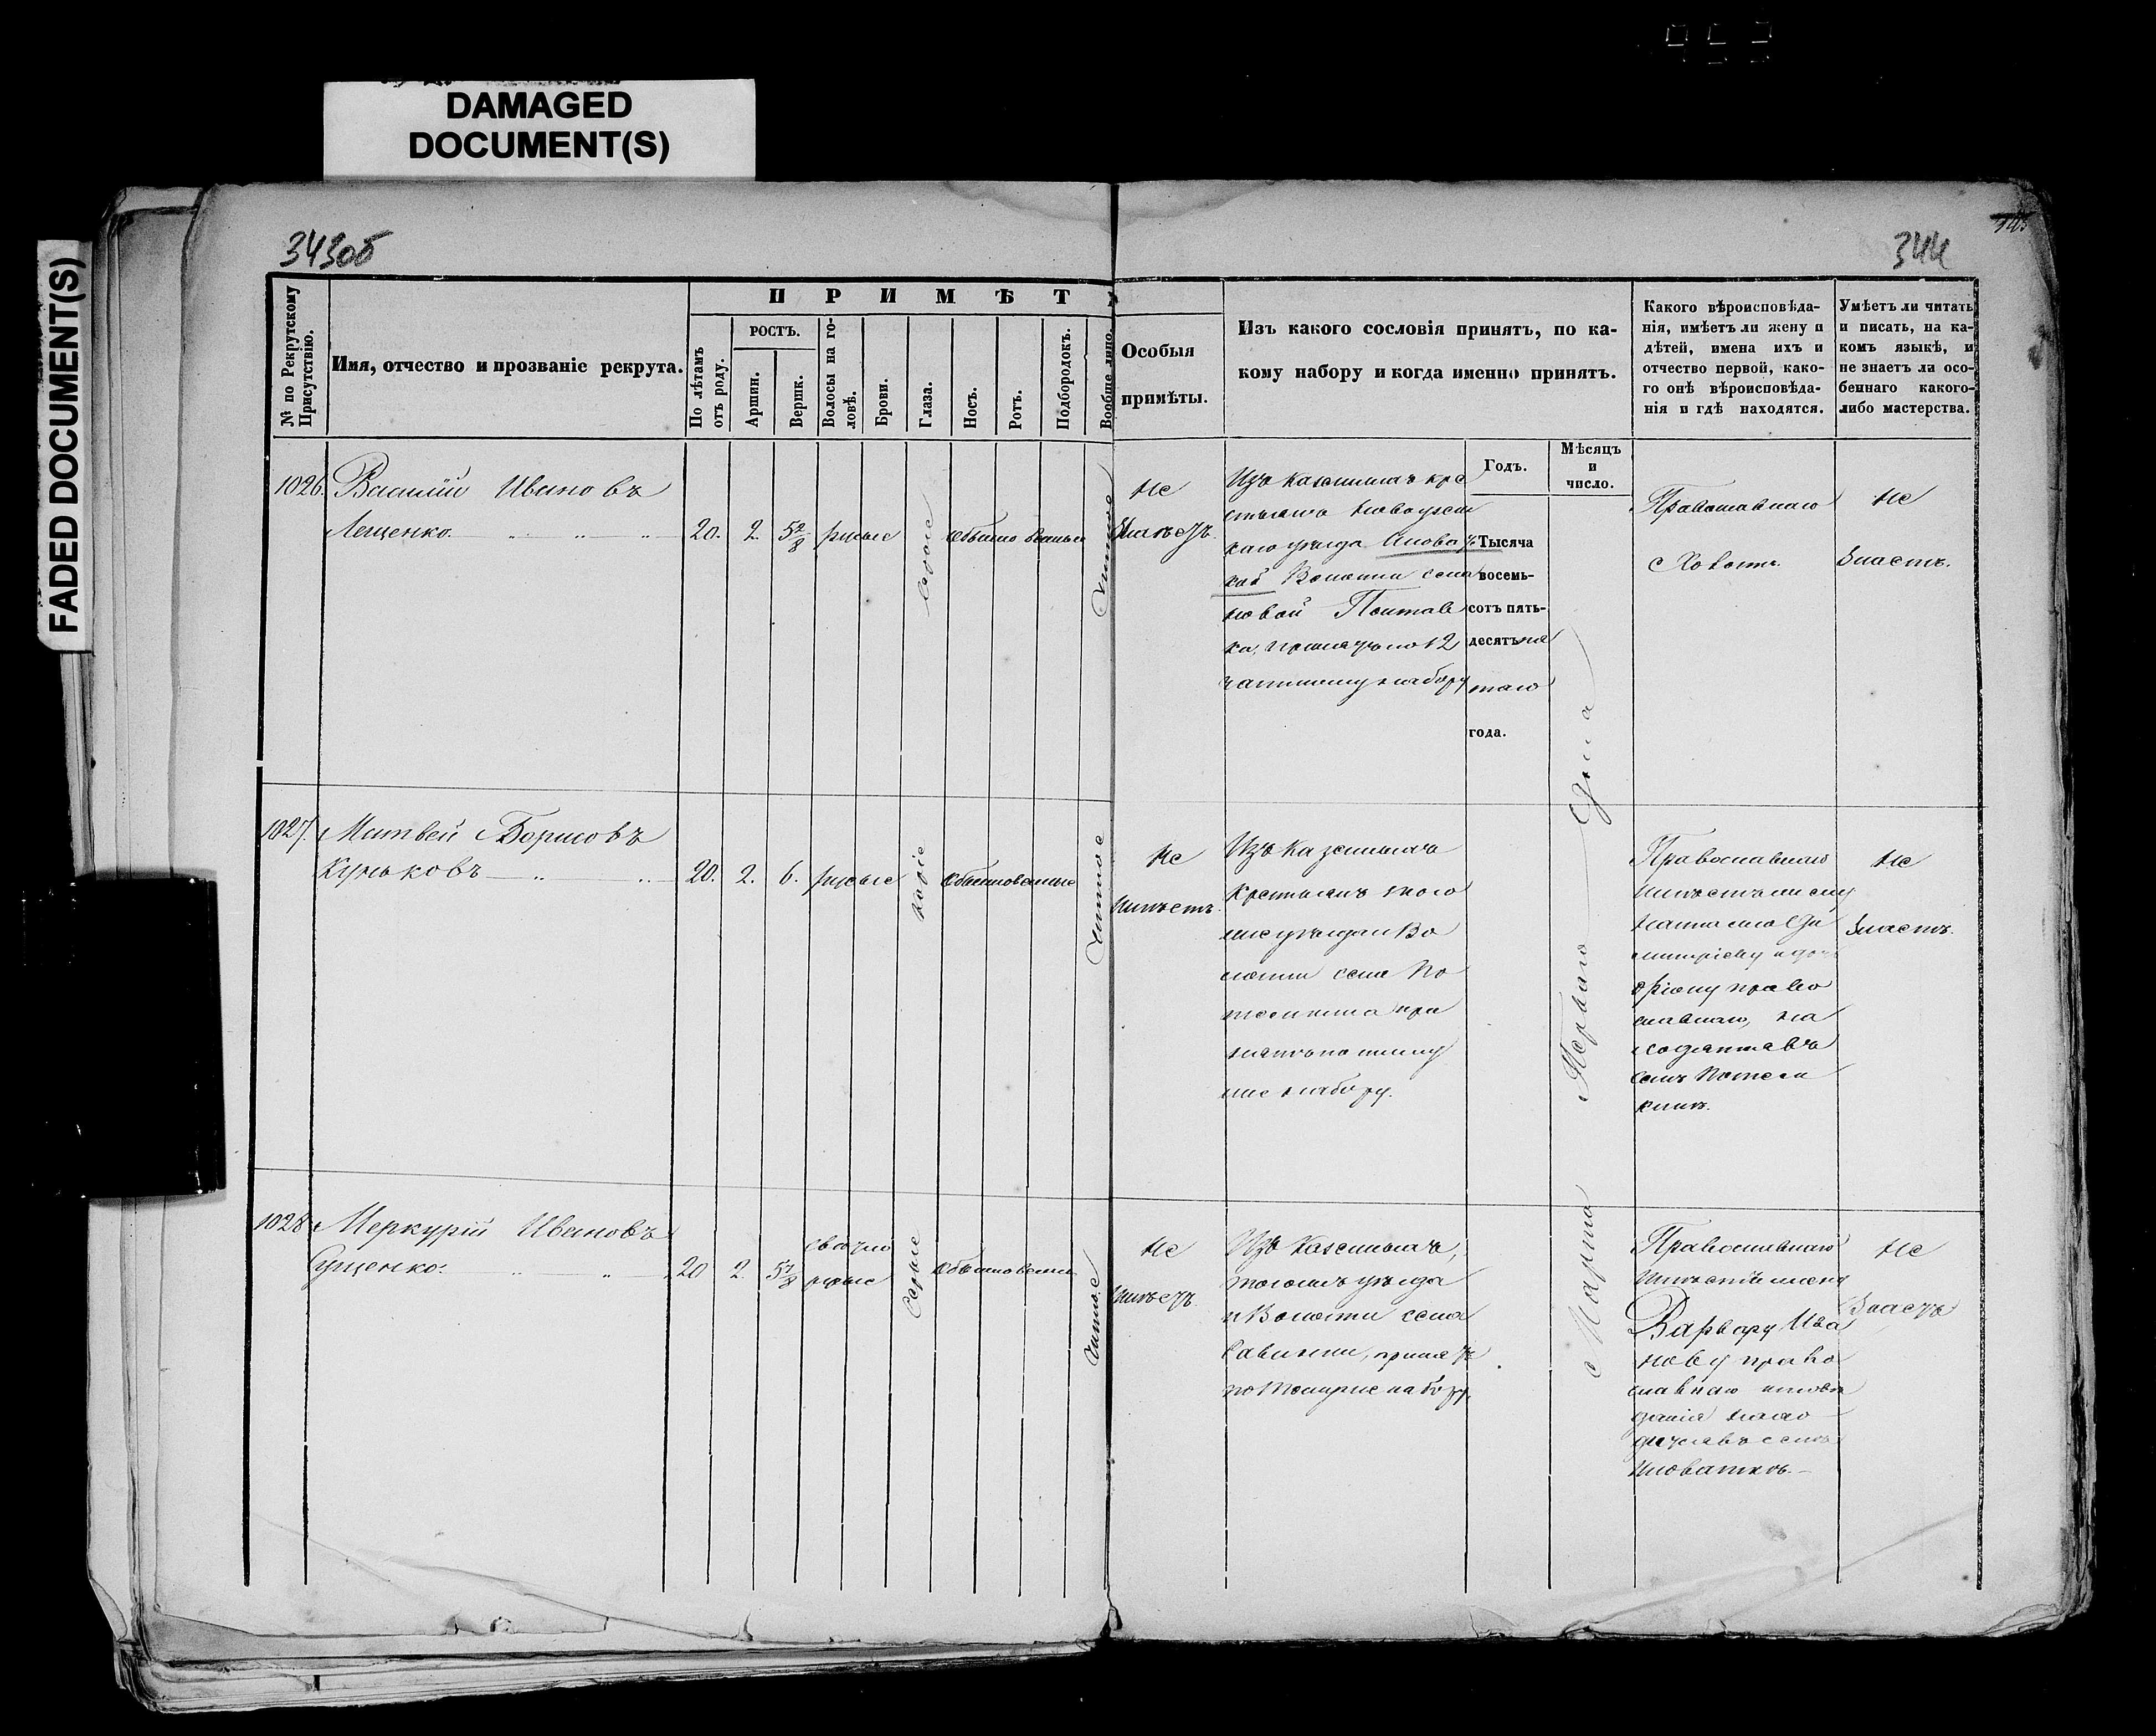 DAMAGED
DOCUMENT(S)
FADED DOCUMENT(S)
343об
344
№ по Рекрутскому Присутствію.
Имя, отчество и прозваніе рекрута.
ПРИМѢТ
По лѣтамъ отъ роду.
РОСТЪ.
Аршин.
Вершк.
Волосы на головѣ.
Брови.
Глаза.
Носъ.
Ротъ.
Подбородокъ.
Вообще лицо.
Особыя
примѣты.
Изъ какого сословія принятъ, по ка-
кому набору и когда именно принятъ.
Какого вѣроисповѣда-
нія, имѣетъ ли жену и
дѣтей, имена ихъ и
отчество первой, како-
го онѣ вѣроисповѣда-
нія и гдѣ находятся.
Умѣетъ ли читать
и писать, на ка-
комъ языкѣ, и
не знаетъ ли осо-
беннаго какого-
либо мастерства.
Годъ.
Мѣсяцъ
и
число.
1026.
Василій Ивановъ
Лещенко.
20.
2.
5 2/8
русые
сѣрые
обыкновенные
чистое
Не
имѣетъ
Изъ казенныхъ кре
стьянъ Новоузен
скаго уѣзда
Волости села
новой Полтав
ки, принятъ по 12
частному набору
Тысяча
восемь-
сотъ пять-
десятъ пя
таго
года.
Марта Перваго дня
Православнаго
Холостъ.
Не
знаетъ.
1027.
Матвей Борисовъ
Куньковъ
20.
2.
6.
русые
каріе
обыкновенные
чистое
Не
имѣетъ.
Изъ казенныхъ
крестьянъ того
же уѣзда и Во
лости села По
темкина при
нятъ по тому
же набору.
Православнаго
имѣетъ жену
православн
находятся въ
селѣ Потем
кинѣ.
Не
знаетъ.
1028
Меркурій Ивановъ
Сущенко.
20
2.
5 7/8
свѣтло
русые
Сѣрые
обыкновенн
чистое
Не
имѣетъ.
Изъ казенныхъ,
того же уѣзда
и Волости села
Савинки, принятъ
по тому же набору.
Православнаго
имѣетъ жену
Варвару Ива
нову право
славнаго исповѣ
данія нахо
дится въ селѣ
Иловаткѣ.
Не
Знаетъ